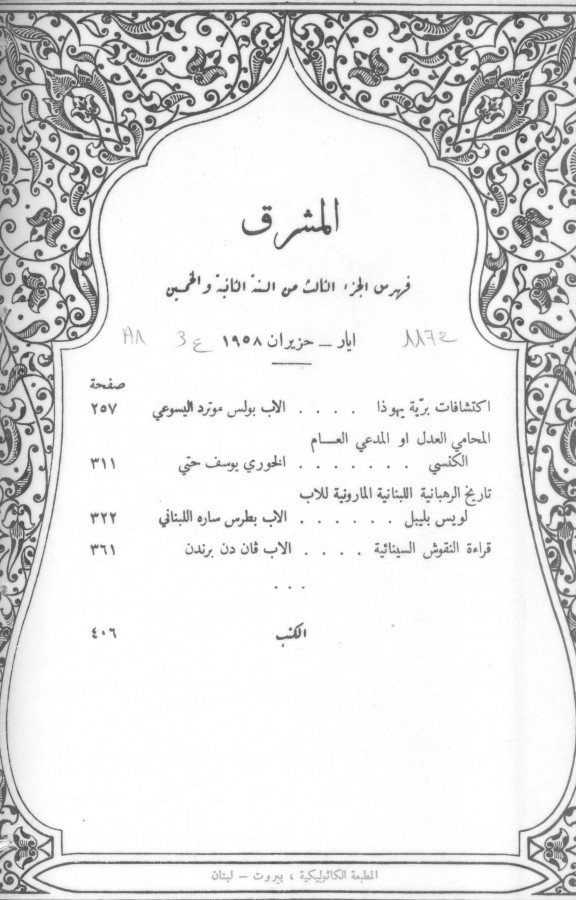 المشرق
فهرس الجزء الثالث من السنة الثانية والخمسين
ايار – حزيران ١٩٥٨
1172
صفحة
اكتشافات برّية يهوذا . . . . الاب بولس موترد اليسوعي ٢٥٧
المحامي العدل او المدعي العـام
الكنسي . . . . . . . الخوري يوسف حتي ٣١١
تاريخ الرهبانية اللبنانية المارونية للاب
لويس بليبل . . . . . . الاب بطرس ساره اللبناني ٣٢٢
قراءة النقوش السينائية . . . . الاب ڤان دن برندن ٣٦١
. . .
الكتب ٤٠٦
المطبعة الكاثوليكية ، بيروت – لبنان